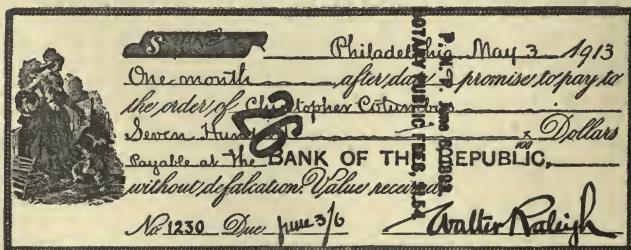 $
Philadelphia, May 3 1913
One month after date I promise to pay to
the order of Christopher Columbus
Seven Hundred x/100 Dollars
Payable at The BANK OF THE REPUBLIC,
without defalcation. Value received
No. 1230 Due June 3/6 Walter Raleigh
NOTARY PUBLIC